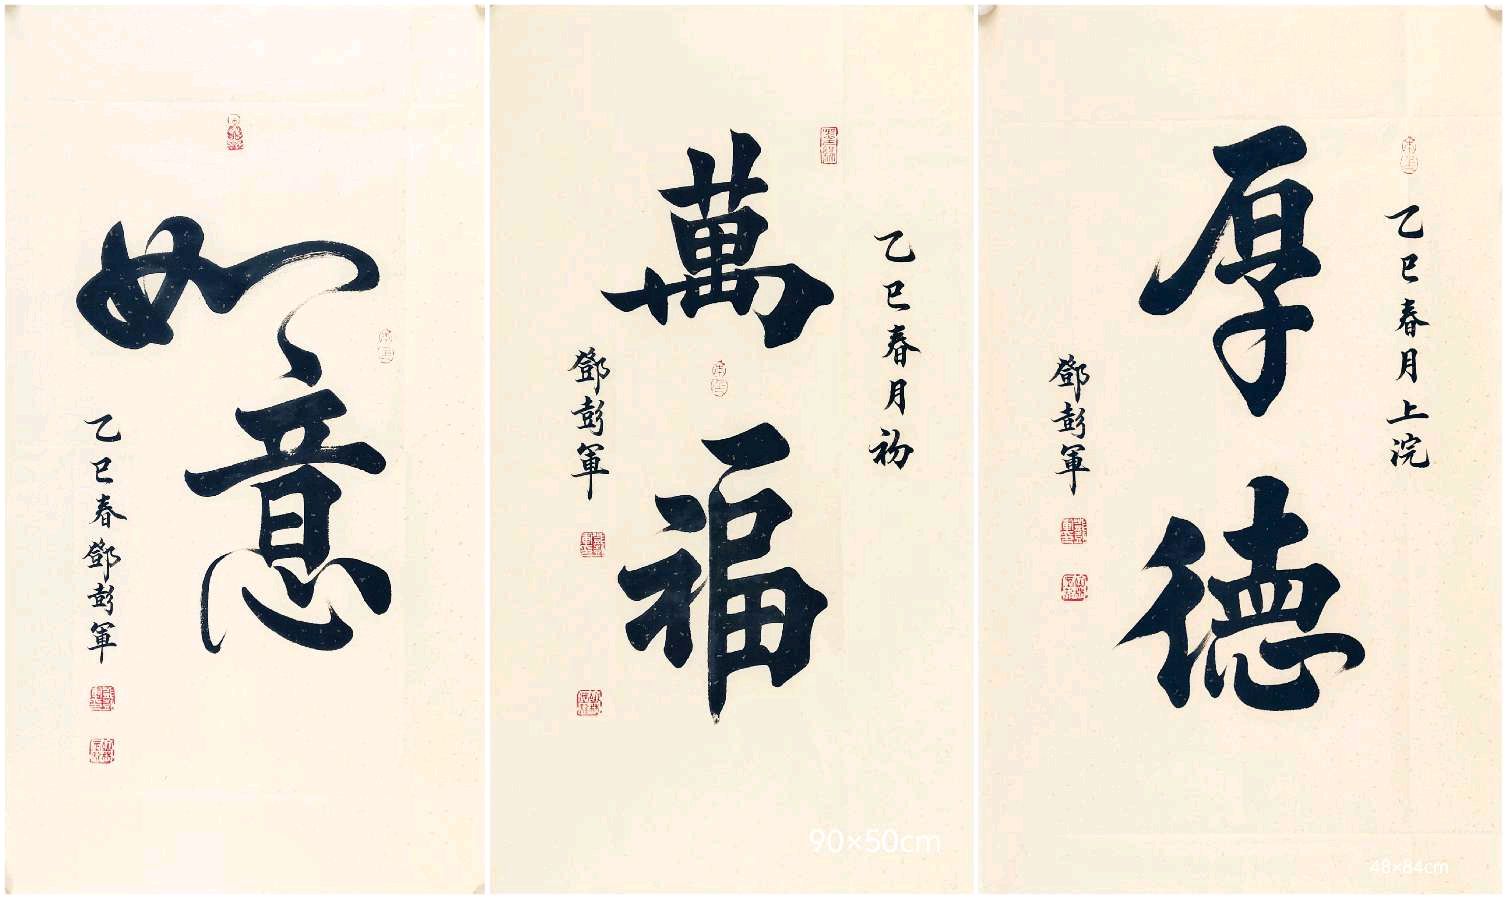 如意
乙巳春鄧彭軍
乙巳春月初
萬福
鄧彭軍
90×50cm
乙巳春月上浣
厚德
鄧彭軍
48×84cm